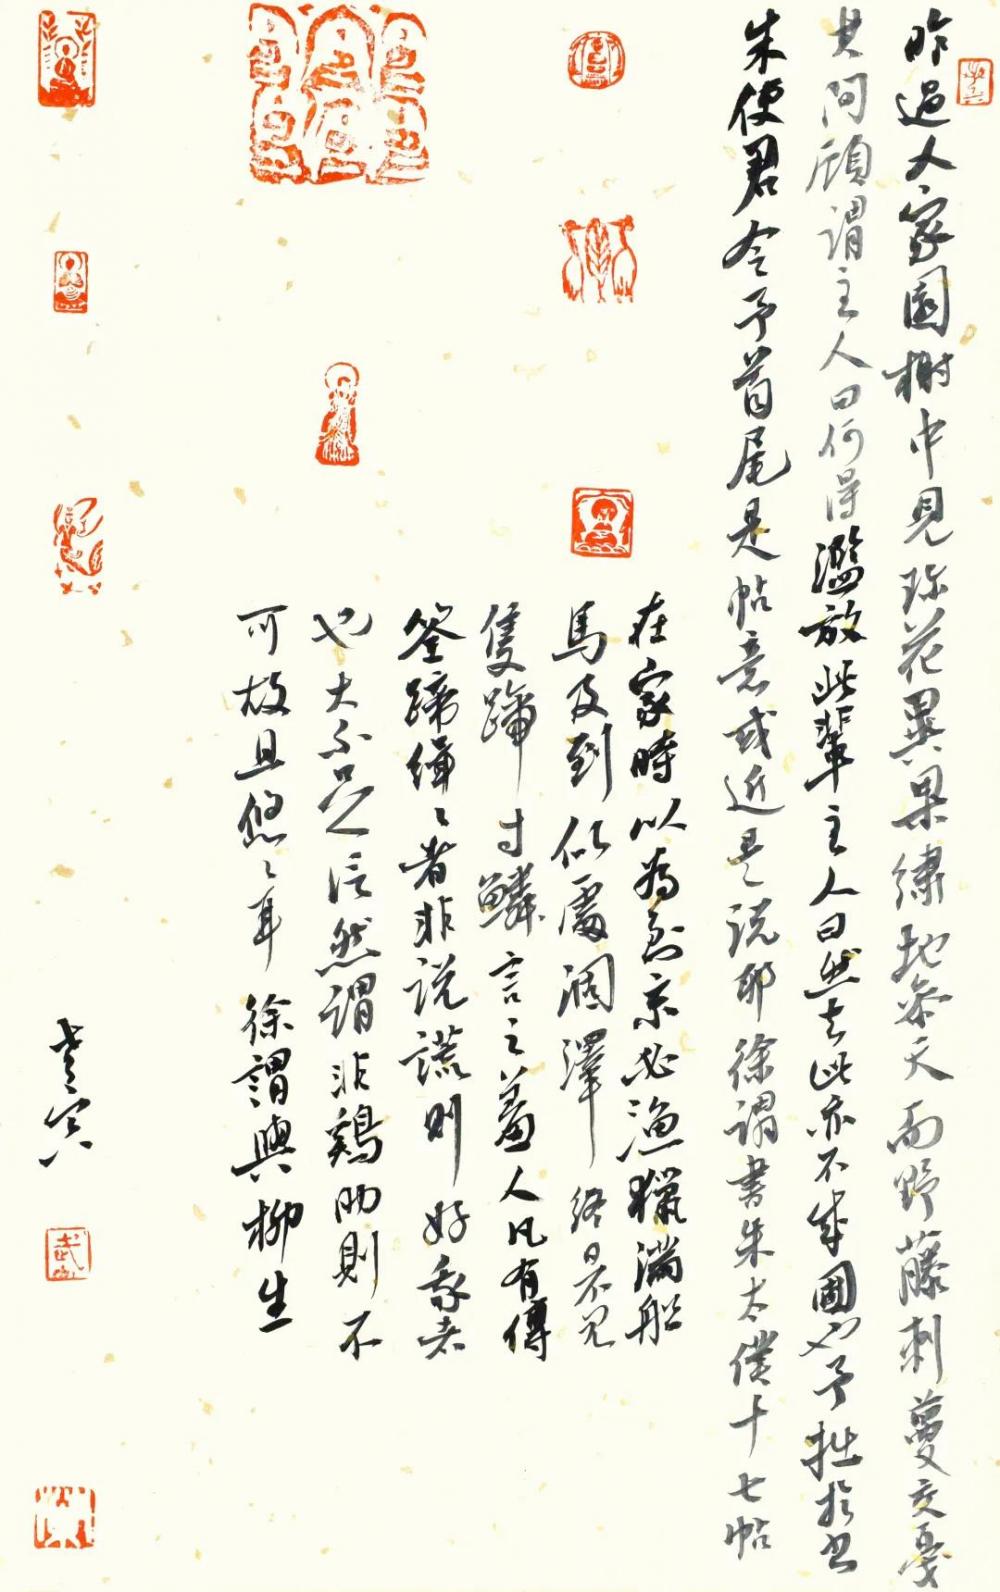 昨過人家園榭中見珍花異果繡地參天而野藤刺蔓交戛
其間顧謂主人曰何得濫放此輩主人曰然去此亦不成圃也予拙於書
朱使君令予首尾是帖意或近是說耶徐謂書朱太僕十七帖
在家時以為到京必漁獵滿船
馬及到似處涸澤終日不見
隻蹄寸鱗言之羞人凡有傳
筌蹄緝緝者非說謊則好我者
也大不足信然謂非雞肋則不
可故且悠悠耳 徐謂與柳生